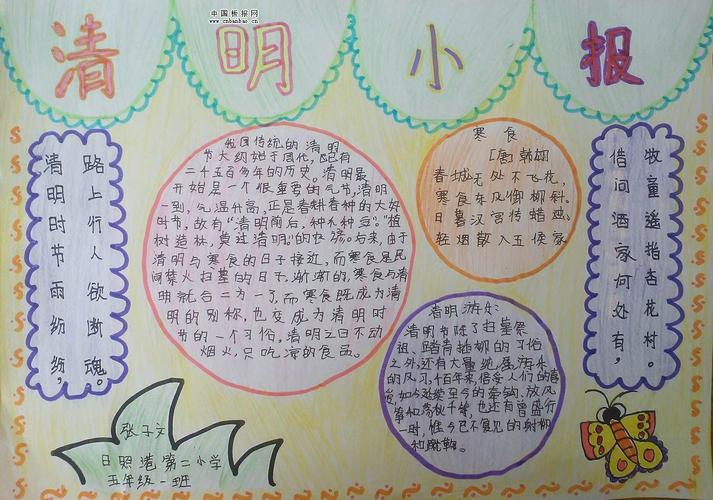 中国板报网
www.cnbanbao.cn
清明小报
清明时节雨纷纷,
路上行人欲断魂。
我国传统的清明
节大约始于周代,已有
二千五百多年的历史。清明最
开始是一个很重要的气节,清明
一到,气温升高,正是春耕春种的大好
时节,故有“清明前后,种瓜种豆。”“植
树造林,莫过清明。”的农谚。后来,由于
清明与寒食的日子接近,而寒食是民
间禁火扫墓的日子,渐渐的,寒食与清
明就合二为一了,而寒食既成为清
明的别称,也变成为清明时
节的一个习俗,清明之日不动
烟火,只吃凉的食品。
寒食
[唐]韩翃
春城无处不飞花,
寒食东风御柳斜。
日暮汉宫传蜡烛,
轻烟散入五侯家
借问酒家何处有,
牧童遥指杏花村。
清明游乐:
清明节除了扫墓祭
祖、踏青插柳的习俗
之外,还有大量 游乐
的风习,千百年来,倍受人们的喜
爱,如今发 至今的牵钩、放风
筝和荡秋千等,也还有曾盛行
一时,惟今已不复见的射柳
和蹴鞠。
张子文
日照港第二小学
五年级一班